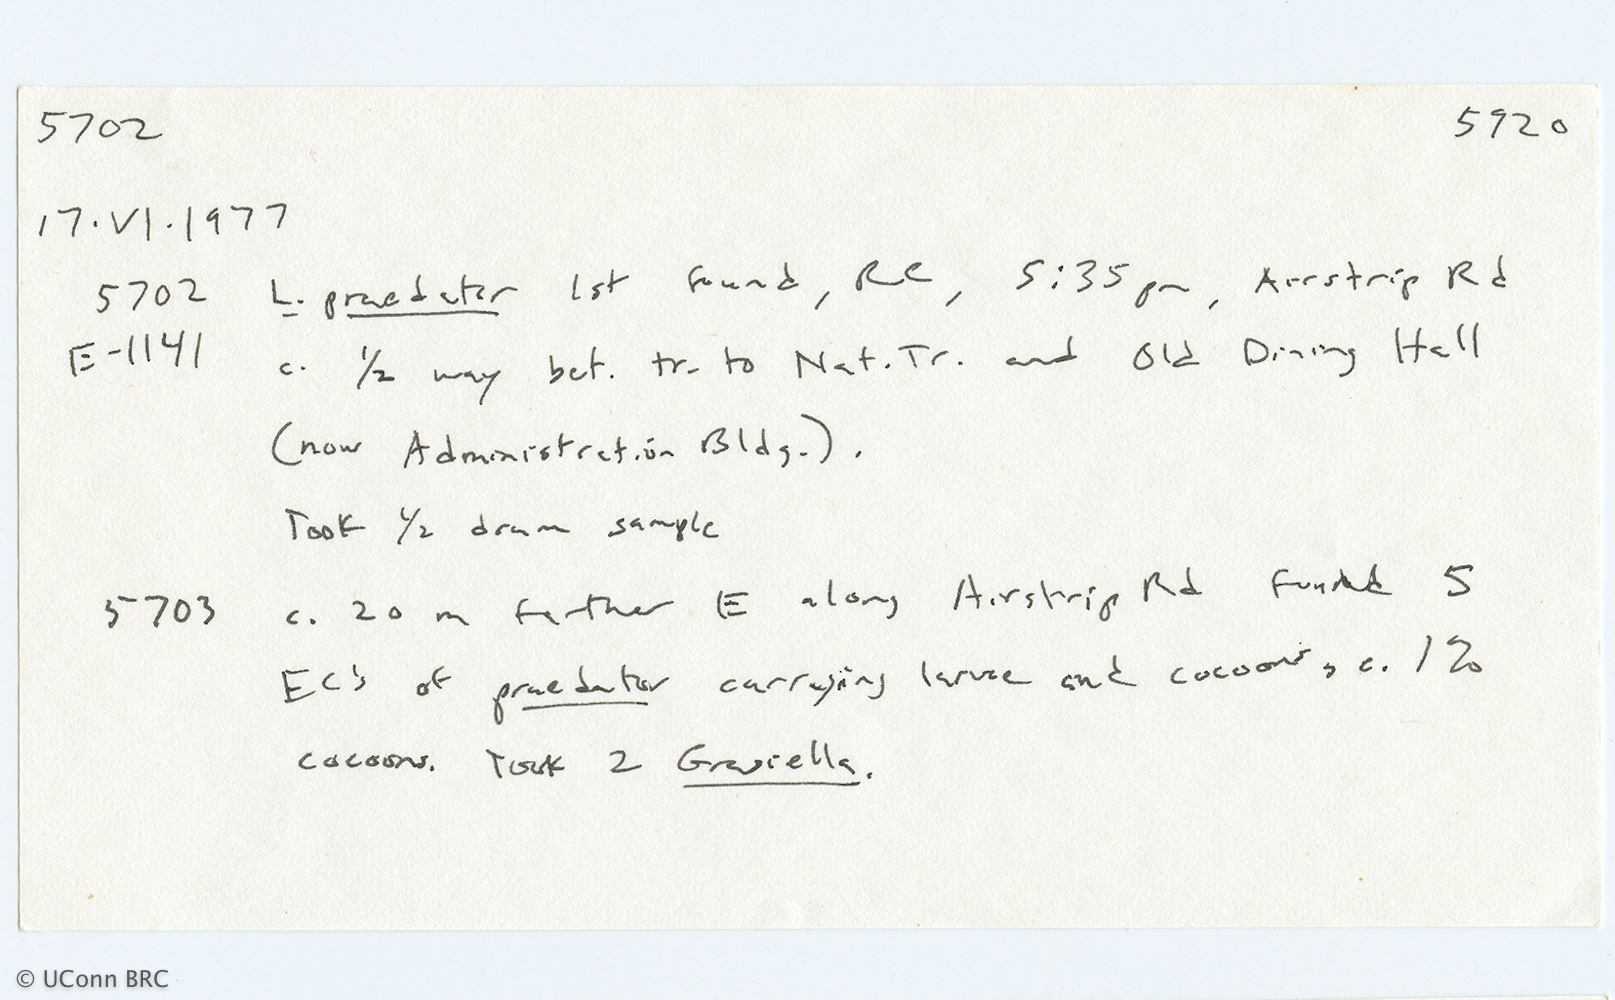 5702 5920
17.VI.1977
5702 L. praedator 1st found, RC, 5:35 pm, Airstrip Rd
E-1141 c. 1/2 way bet. tr. to Nat. Tr. and Old Dining Hall
(now Administration Bldg.).
Took 1/2 dram sample
5703 c. 20 m farther E along Airstrip Rd found 5
EC's of praedator carrying larvae and cocoons, c. 1%
cocoons. Took 2
© UConn BRC